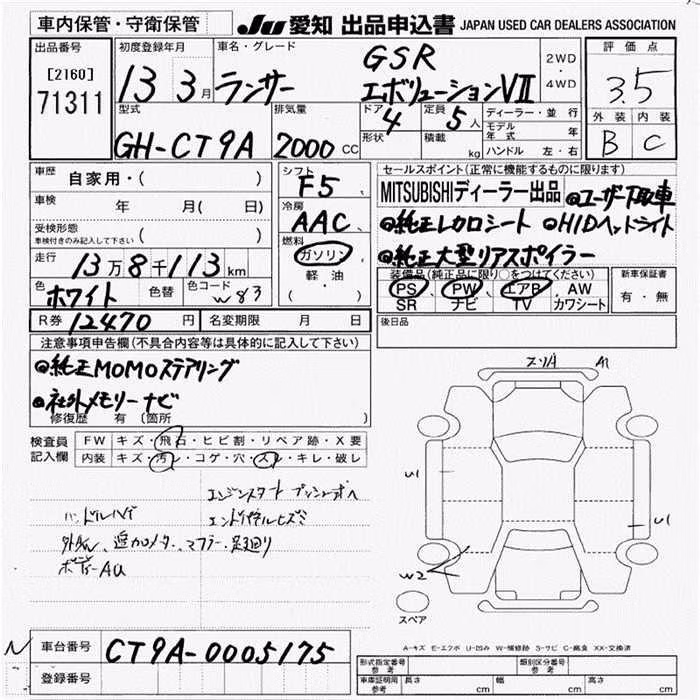 車内保管・守衛保管
JU 愛知 出品申込書 JAPAN USED CAR DEALERS ASSOCIATION
出品番号
[2160]
71311
初度登録年月
13 3月
車名・グレード
ランサー
GSR
エボリューションVII
2WD
・
4WD
評価点
3.5
外装 内装
B C
型式
GH-CT9A
排気量
2000 CC
ドア 4
形状
定員 5人
積載 kg
ディーラー・並行
モデル年式 年
ハンドル 左・右
車歴
自家用・( )
車検
年 月( 日)
受検形態
車検付きのみ記入して下さい ( )
走行
13万8千113km
色
ホワイト
色替
色コード
W83
R券 12470 円
名変期限 月 日
シフト
F5
冷房
AAC
燃料
ガソリン
軽油
( )
セールスポイント(正常に機能するものに限ります)
MITSUBISHIディーラー出品 ◎ユーザー下取車
◎純正レカロシート ◎HIDヘッドライト
◎純正大型リアスポイラー
装備品(純正品に限り○をつけてください)
PS、PW、エアB、AW
SR ナビ TV カワシート
新車保証書
有・無
後日品
注意事項申告欄(不具合内容等は具体的に記入して下さい)
◎純正MOMOステアリング
◎社外メモリーナビ
修復歴 有 〔箇所 〕
検査員
記入欄
FW キズ・飛石・ヒビ割・リペア跡・X要
内装 キズ・汚レ・コゲ・穴・スレ・キレ・破レ
エンジンスタートプッシュボへ
ハンドルハゲ エンドパネルヒズミ
外ナビ、追加メーター、マフラー・足廻り
ボデーAU
スリA A1
U1
U1
W2
スペア
A-キズ E-エクボ U-凹み W-補修跡 S-サビ C-腐食 XX-交換済
車台番号
CT9A-0005175
登録番号
形式指定番号
参考
類別区分番号
参考
車庫証明用
参考
長さ cm 幅 cm 高さ cm